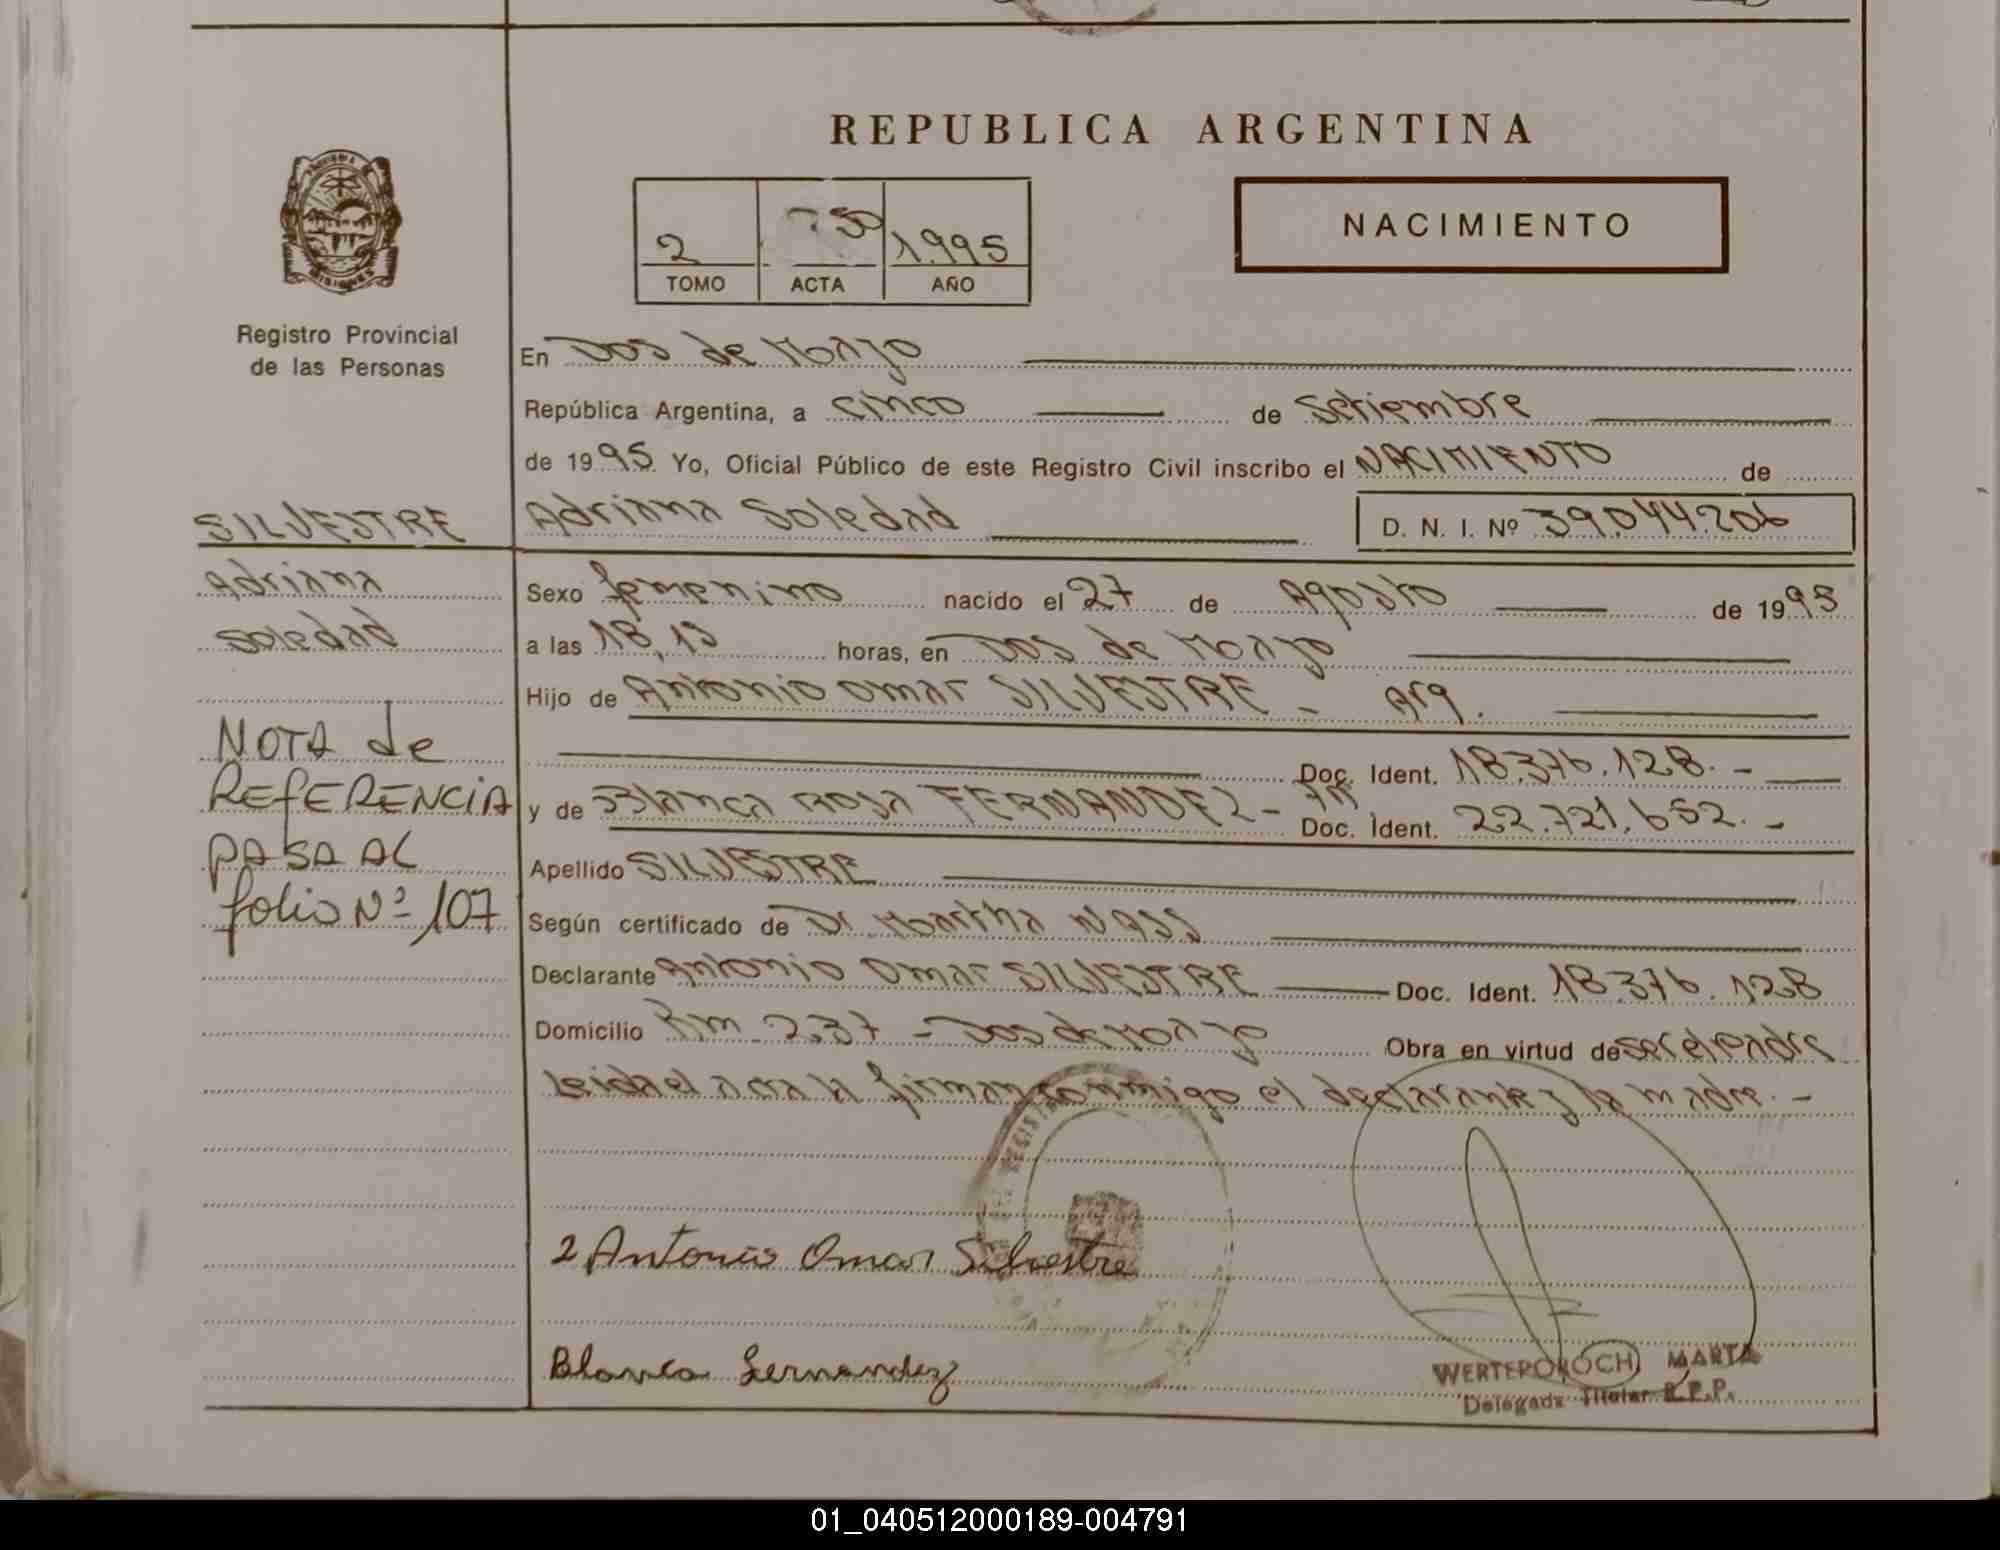 REPUBLICA ARGENTINA
2 750 1.995
TOMO ACTA AÑO
NACIMIENTO
Registro Provincial
de las Personas
SILVESTRE
Adriana
Soledad
NOTA de
REFERENCIA
PASA AL
folio Nº 107
En Dos de Mayo
República Argentina, a cinco de Setiembre
de 1995 Yo, Oficial Público de este Registro Civil inscribo el NACIMIENTO de
Adriana Soledad D. N. I. Nº 39.044.206
Sexo femenino nacido el 27 de Agosto de 1995
a las 18,15 horas, en Dos de Mayo
Hijo de Antonio Omar SILVESTRE - Arg.
Doc. Ident. 18.376.128.-
y de Blanca Rosa FERNANDEZ - Doc. Ident. 22.721.652.-
Apellido SILVESTRE
Según certificado de Dr. Martha
Declarante Antonio Omar SILVESTRE Doc. Ident. 18.376.128
Domicilio Km 237 - Dos de Mayo Obra en virtud de ser el padre
Leida el acta la firman conmigo el declarante y la madre.-
2 Antonio Omar Silvestre
Blanca Fernandez
WERTEPOROCH MARTA
Delegada Titular R.P.P.
01_040512000189-004791